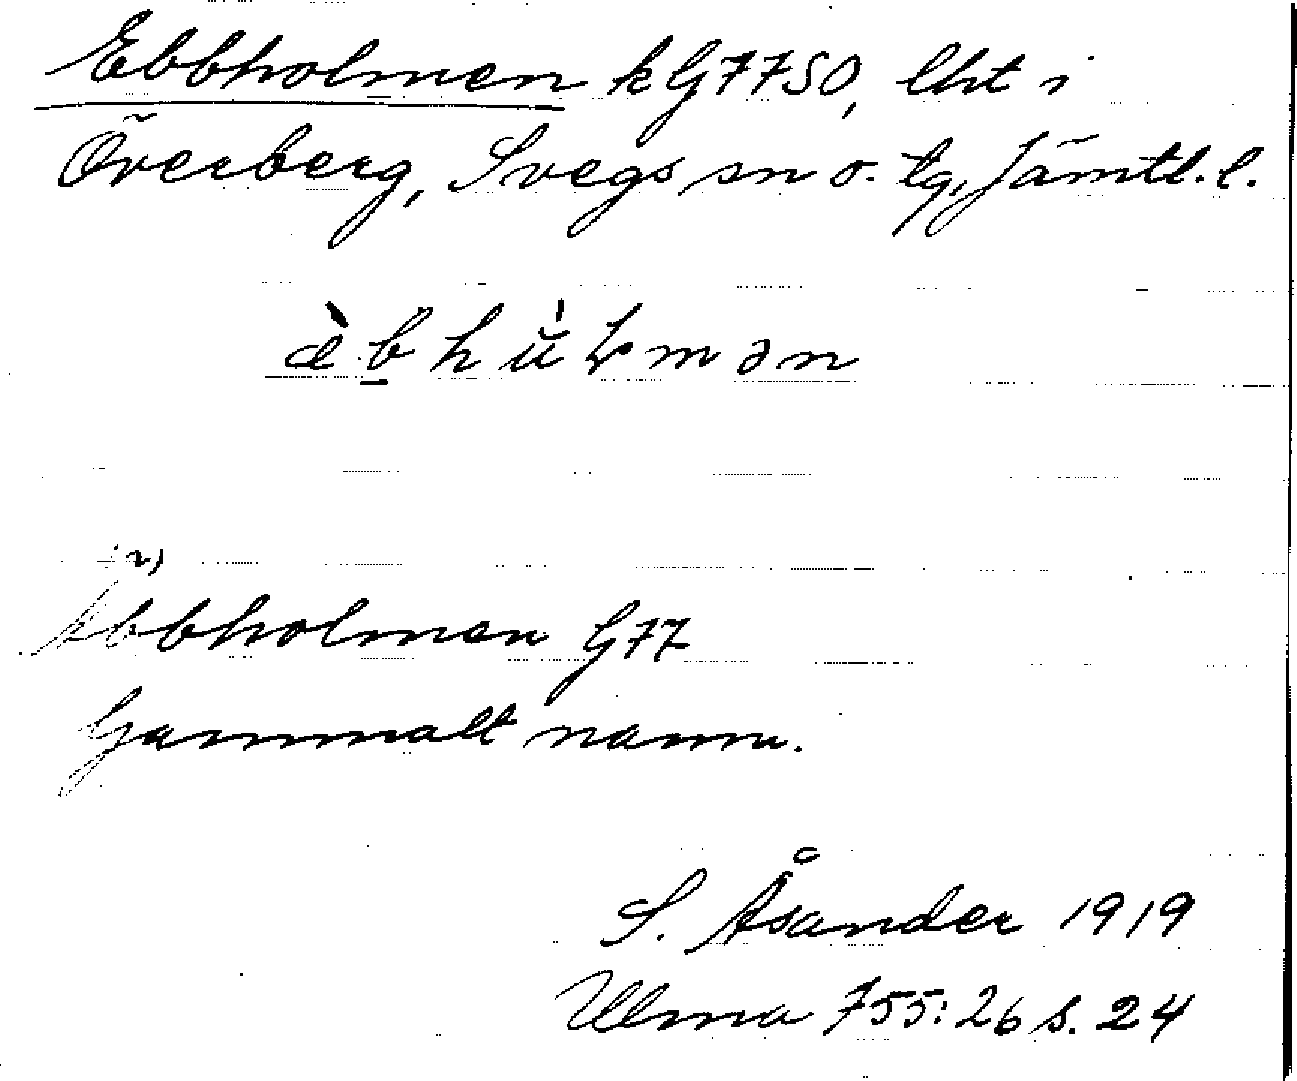 Ebbholmen k G7750, lht i
Överberg, Svegs sn o. tg, Jämtl. l.
æ̀bhùɫmən
2)
Abbholmen G77
Gammalt namn.
S. Åsander 1919
Ulma 755:26 s. 24